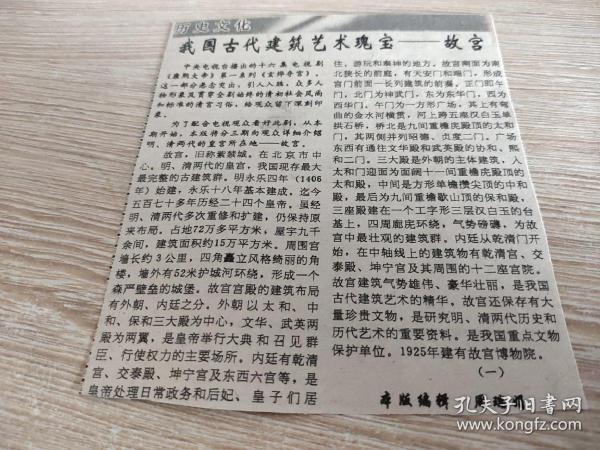 历史文化
我国古代建筑艺术瑰宝——故宫
中央电视台播出的十六集电视剧
《康熙大帝》第一系列《玄烨夺宫》,
这一部分悬念突出,引人入胜,众多人
物形象及贯穿全剧始终的清初社会风尚
和标准的清宫习俗,给观众留下深刻印
象。
为了配合电视观众看好此剧,从本
期开始,本版将分三期向观众详细介绍
明、清两代的皇宫所在地——故宫。
故宫,旧称紫禁城。在北京市中
心。明、清两代的皇宫,我国现存最大
最完整的古建筑群。明永乐四年(1406
年)始建,永乐十八年基本建成。迄今
五百七十多年历经二十四个皇帝。虽经
明、清两代多次重修和扩建,仍保持原
来布局。占地72万多平方米,屋宇九千
余间,建筑面积约15万平方米。周围宫
墙长约3公里,四角矗立风格绮丽的角
楼,墙外有52米护城河环绕,形成一个
森严壁垒的城堡。故宫宫殿的建筑布局
有外朝、内廷之分。外朝以太和、中
和、保和三大殿为中心,文华、武英两
殿为两翼,是皇帝举行大典和召见群
臣、行使权力的主要场所。内廷有乾清
宫、交泰殿、坤宁宫及东西六宫等,是
皇帝处理日常政务和后妃、皇子们居
住、游玩和奉神的地方。故宫南面为南
北狭长的前庭,有天安门和端门,形成
宫门前面一长列建筑的前奏。正门即午
门,北门为神武门,东为东华门,西为
西华门。午门为一方形广场,其上有弯
曲的金水河横贯,河上跨五座汉白玉单
拱石桥,桥北是九间重檐庑殿顶的太和
门,其两侧并列昭德、贞度二门。广场
东西有通往文华殿和武英殿的协和、熙
和二门。三大殿是外朝的主体建筑,入
太和门迎面为面阔十一间重檐庑殿顶的
太和殿,中间是方形单檐攒尖顶的中和
殿,最后为九间重檐歇山顶的保和殿,
三座殿建在一个工字形三层汉白玉的台
基上,四周廊庑环绕,气势磅礴,为故
宫中最壮观的建筑群。内廷从乾清门开
始,在中轴线上的建筑物有乾清宫、交
泰殿、坤宁宫及其周围的十二座宫院。
故宫建筑气势雄伟、豪华壮丽,是我国
古代建筑艺术的精华。故宫还保存有大
量珍贵文物,是研究明、清两代历史和
历代艺术的重要资料。是我国重点文物
保护单位。1925年建有故宫博物院。
(一)
本版编辑
孔夫子旧书网
www.kongfz.com